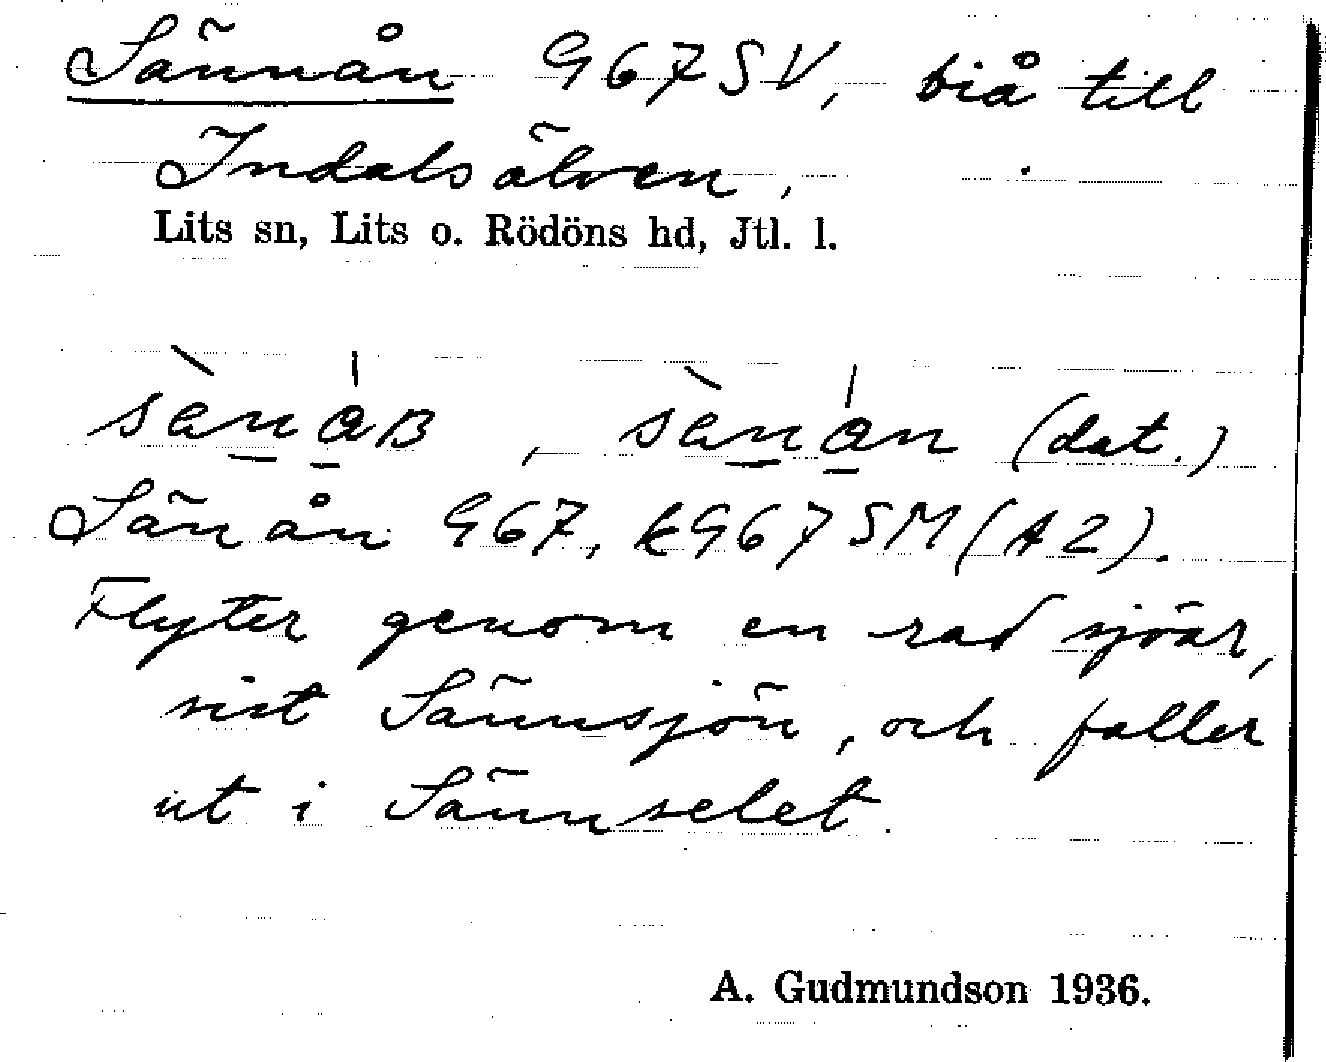 Sännån G67SV, biå till
Indalsälven,
Lits sn, Lits o. Rödöns hd, Jtl. l.
sànåB, sànån (dat.)
Sänån G67, kG67SM(A2).
Flyter genom en rad sjöar,
sist Sännsjön, och faller
ut i Sännselet.
A. Gudmundson 1936.